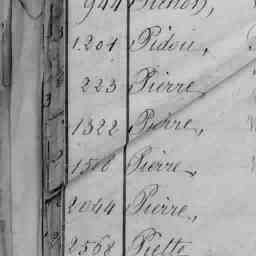 944 Pichon,
1201 Pidou,
223 Pierre,
1322 Pierre,
1508 Pierre,
2044 Pierre,
2568 Piette